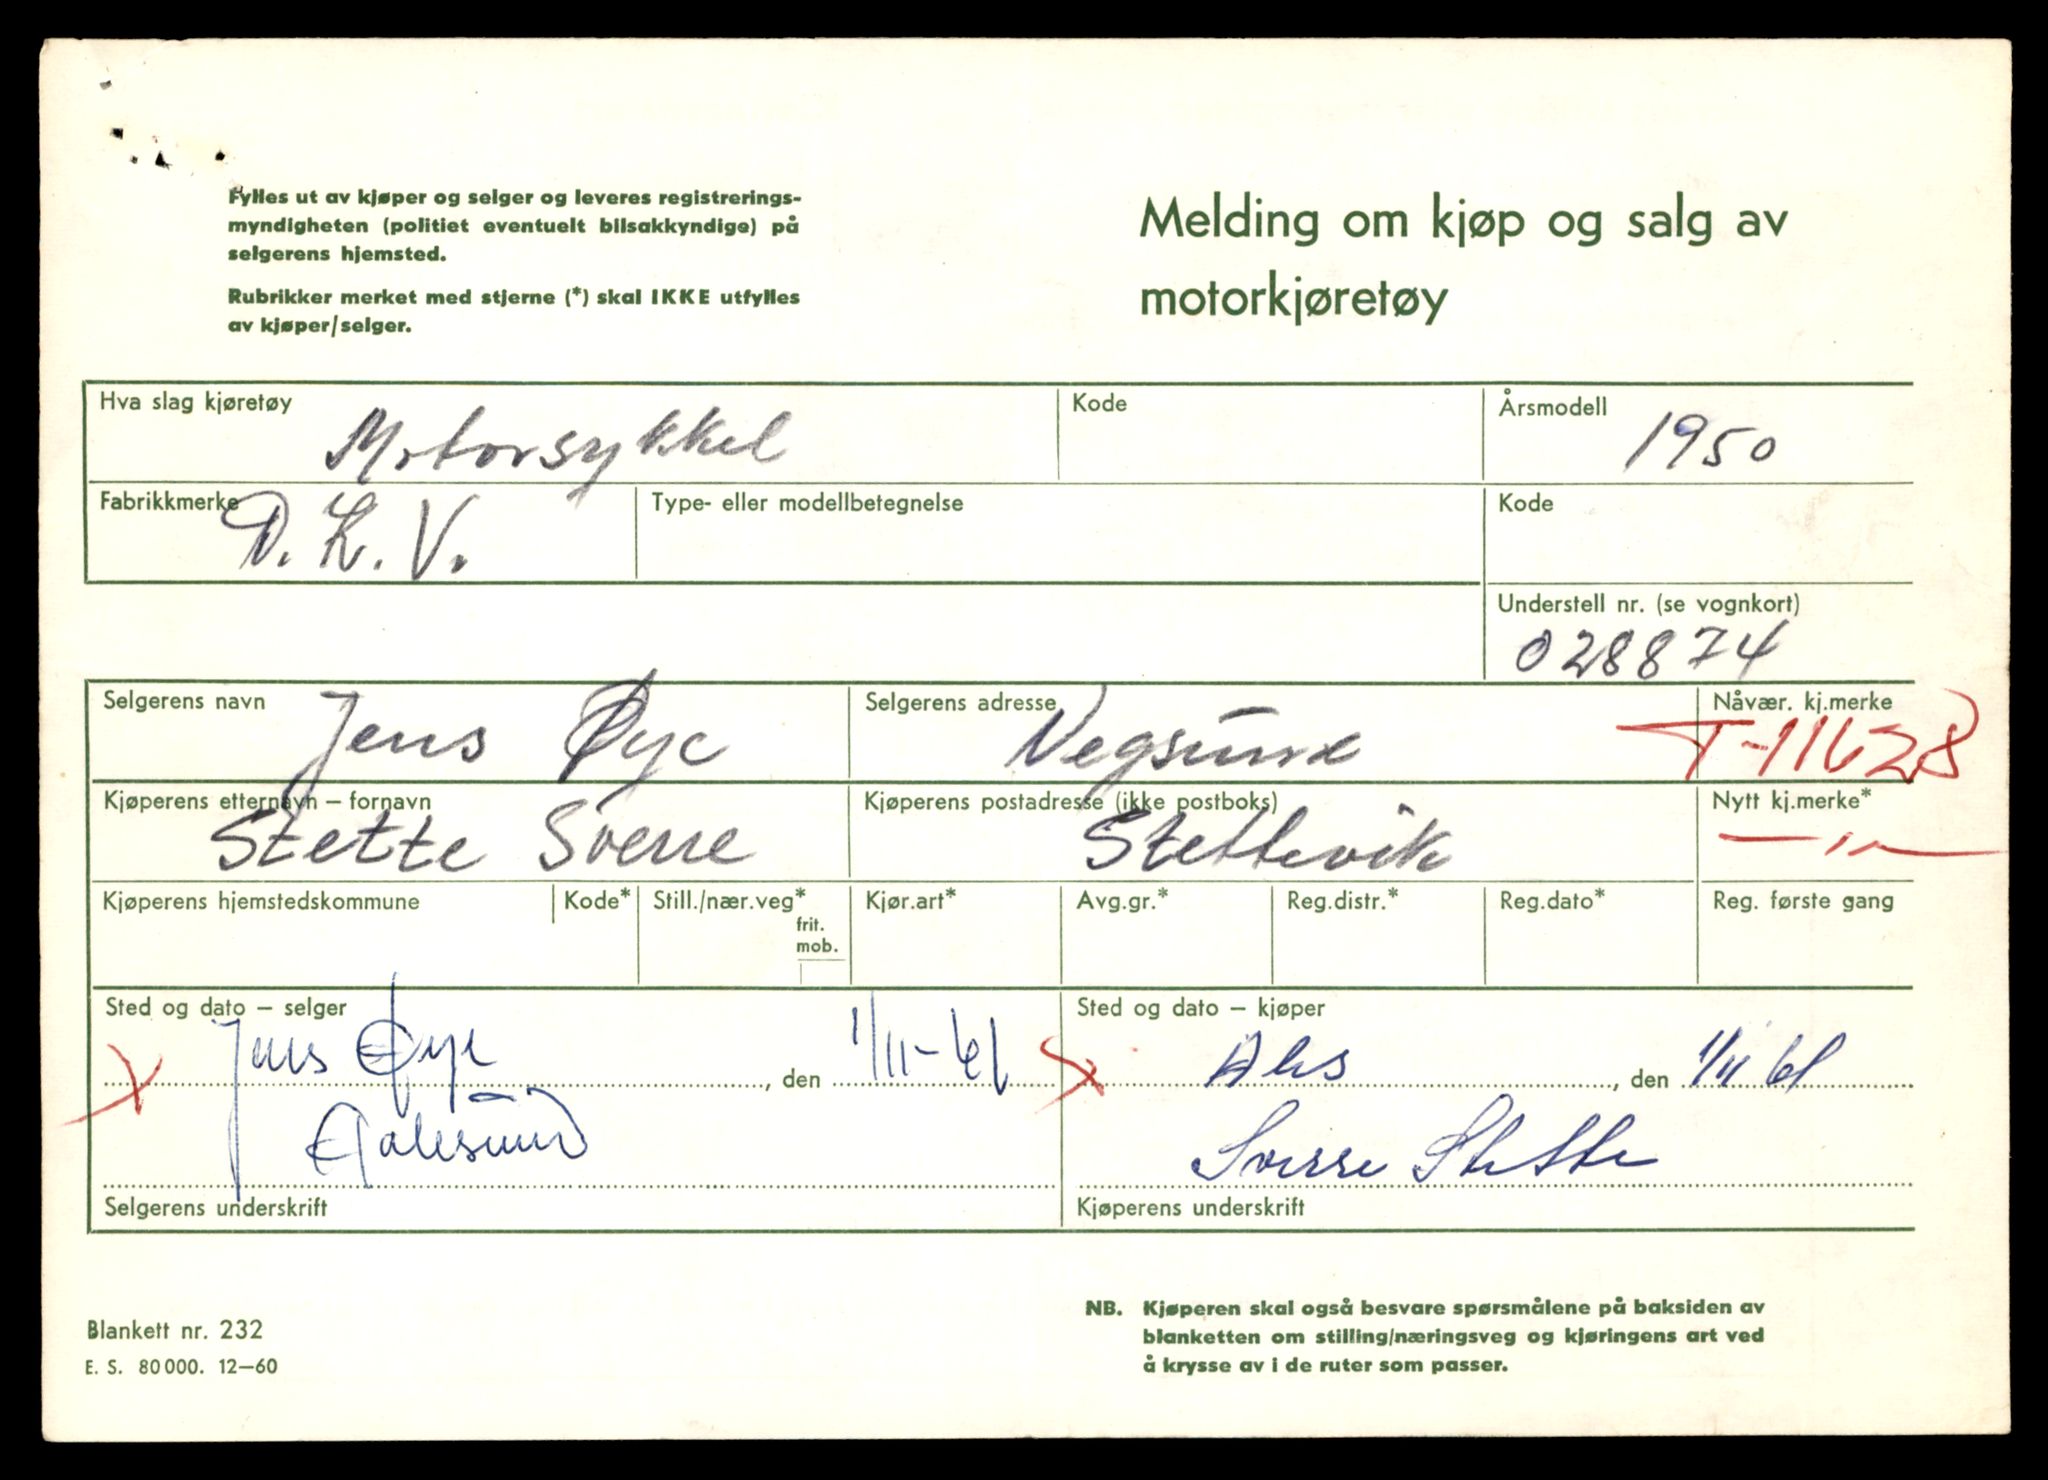 Fylles ut av kjøper og selger og leveres registrerings-
myndigheten (politiet eventuelt bilsakkyndige) på
selgerens hjemsted.
Rubrikker merket med stjerne (*) skal IKKE utfylles
av kjøper/selger.
Melding om kjøp og salg av
motorkjøretøy
Hva slag kjøretøy
Motorsykkel
Kode
Årsmodell
1950
Fabrikkmerke
D. K. V.
Type- eller modellbetegnelse
Kode
Understell nr. (se vognkort)
028874
Selgerens navn
Jens Øye
Selgerens adresse
Vegsund
Nåvær. kj.merke
T-11628
Kjøperens etternavn – fornavn
Stette Sverre
Kjøperens postadresse (ikke postboks)
Stettevik
Nytt kj.merke*
—"—
Kjøperens hjemstedskommune
Kode*
Still./nær.veg*
frit.
mob.
Kjør.art*
Avg.gr.*
Reg.distr.*
Reg.dato*
Reg. første gang
Sted og dato – selger
Jens Øye , den 1/11-61
Sted og dato – kjøper
x Ales , den 1/11 61
Sverre Stette
Selgerens underskrift
Kjøperens underskrift
Blankett nr. 232
E. S. 80 000. 12–60
NB. Kjøperen skal også besvare spørsmålene på baksiden av
blanketten om stilling/næringsveg og kjøringens art ved
å krysse av i de ruter som passer.